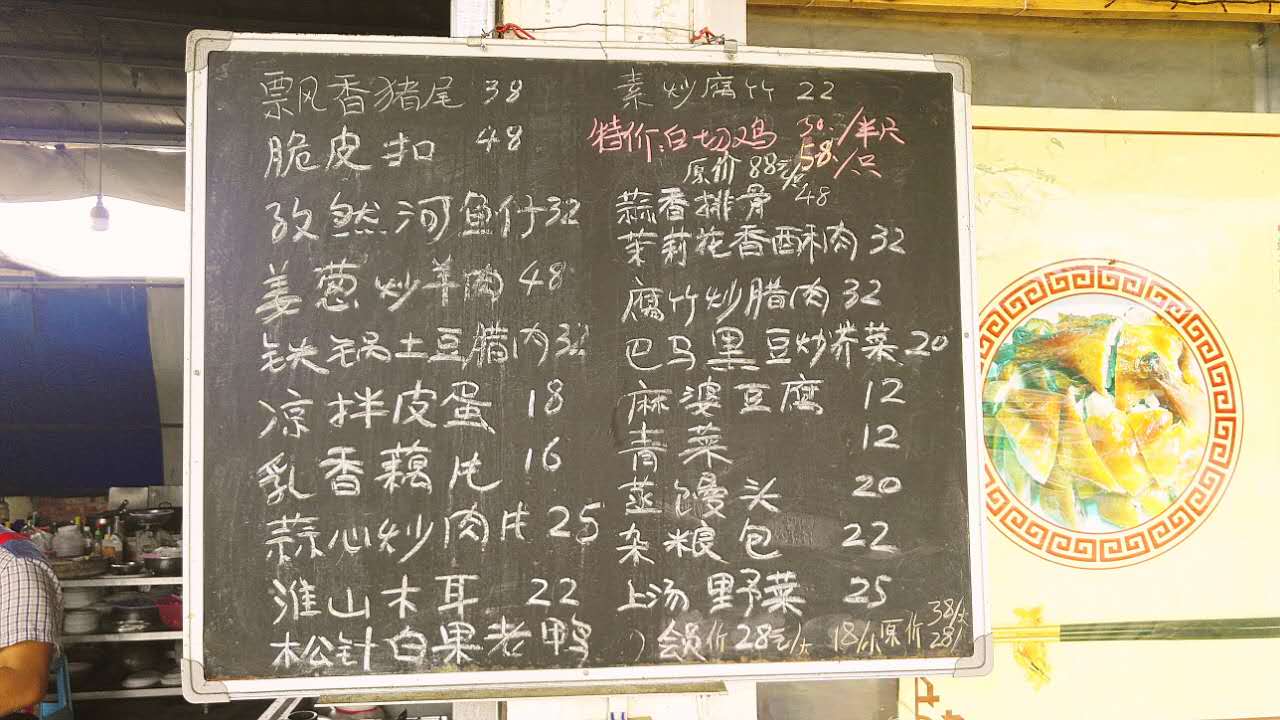 飘香猪尾 38
脆皮扣 48
孜然河鱼仔32
姜葱炒羊肉 48
铁锅土豆腊肉32
凉拌皮蛋 18
乳香藕片 16
蒜心炒肉片 25
淮山木耳 22
松针白果老鸭
素炒腐竹 22
特价:白切鸡 30/半只
58/只
原价88元/只
蒜香排骨 48
茉莉花香酥肉 32
腐竹炒腊肉32
巴马黑豆炒芥菜20
麻婆豆腐 12
青菜 12
蒸馒头 20
杂粮包 22
上汤野菜 25
会员价28元/大 18/小 原价 38/大
28/